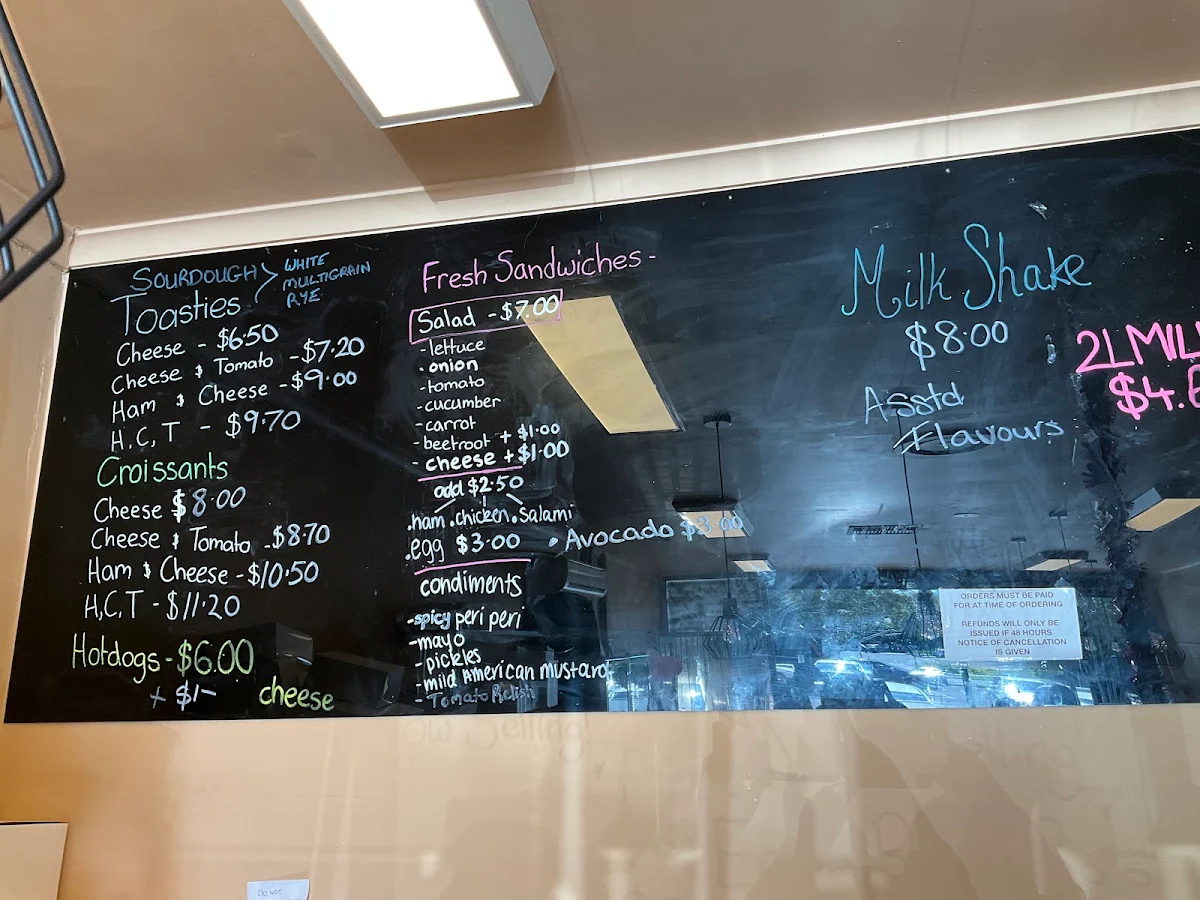 SOURDOUGH
WHITE
MULTIGRAIN
RYE
Toasties
Cheese - $6.50
Cheese & Tomato - $7.20
Ham & Cheese - $9.00
H.C,T - $9.70
Croissants
Cheese $8.00
Cheese & Tomato - $8.70
Ham & Cheese - $10.50
H,C,T - $11.20
Hotdogs - $6.00
+ $1- cheese
Fresh Sandwiches -
Salad - $7.00
- lettuce
. onion
- tomato
- cucumber
- carrot
- beetroot + $1.00
- cheese + $1.00
add $2.50
.ham .chicken .Salami
.egg $3.00 • Avocado $3.00
condiments
- spicy peri peri
- mayo
- pickles
- mild American mustard
- Tomato Relish
Milk Shake
$8.00
Asstd
Flavours
2L MIL
$4.
ORDERS MUST BE PAID
FOR AT TIME OF ORDERING
REFUNDS WILL ONLY BE
ISSUED IF 48 HOURS
NOTICE OF CANCELLATION
IS GIVEN
Do not